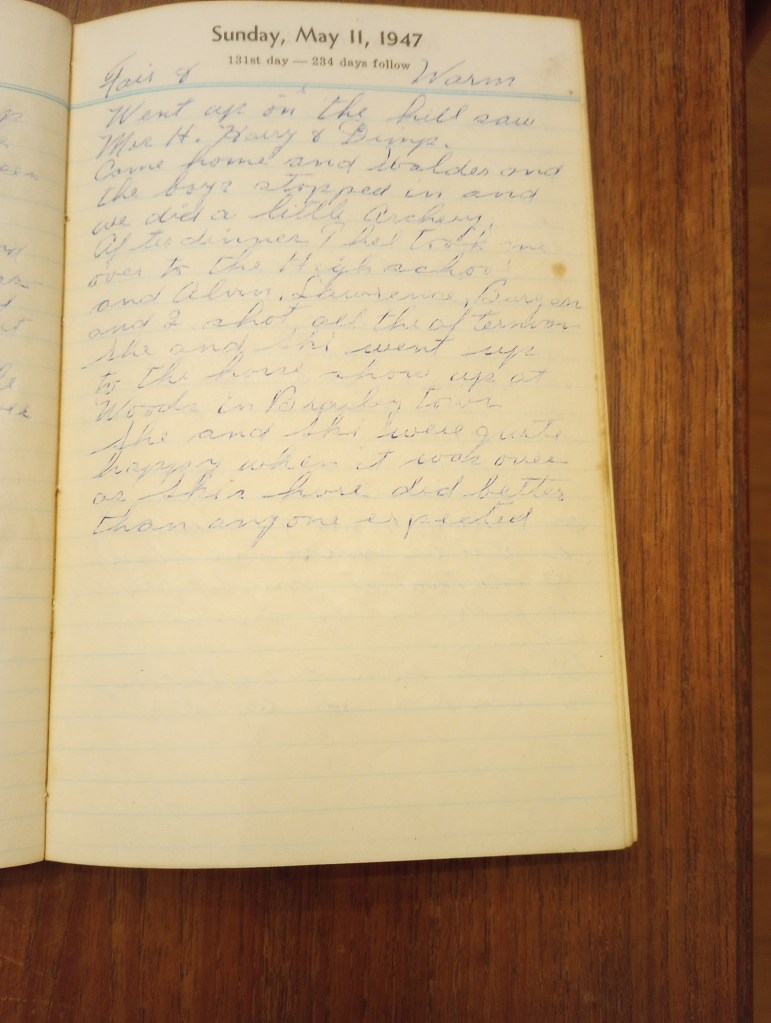 Sunday, May 11, 1947
131st day — 234 days follow
Fair & Warm
Went up on the hill saw
Mrs H. Harry & Dimp.
Came home and Walder and
the boys stopped in and
we did a little Archery.
After dinner took me
over to the High school
and Alvin, Lawrence, Burgen
and I shot all the afternoon
She and Shi went up
to the horse show up at
Woods in Bradley town
She and Shi were quite
happy when it was over
as Shis horse did better
than anyone expected